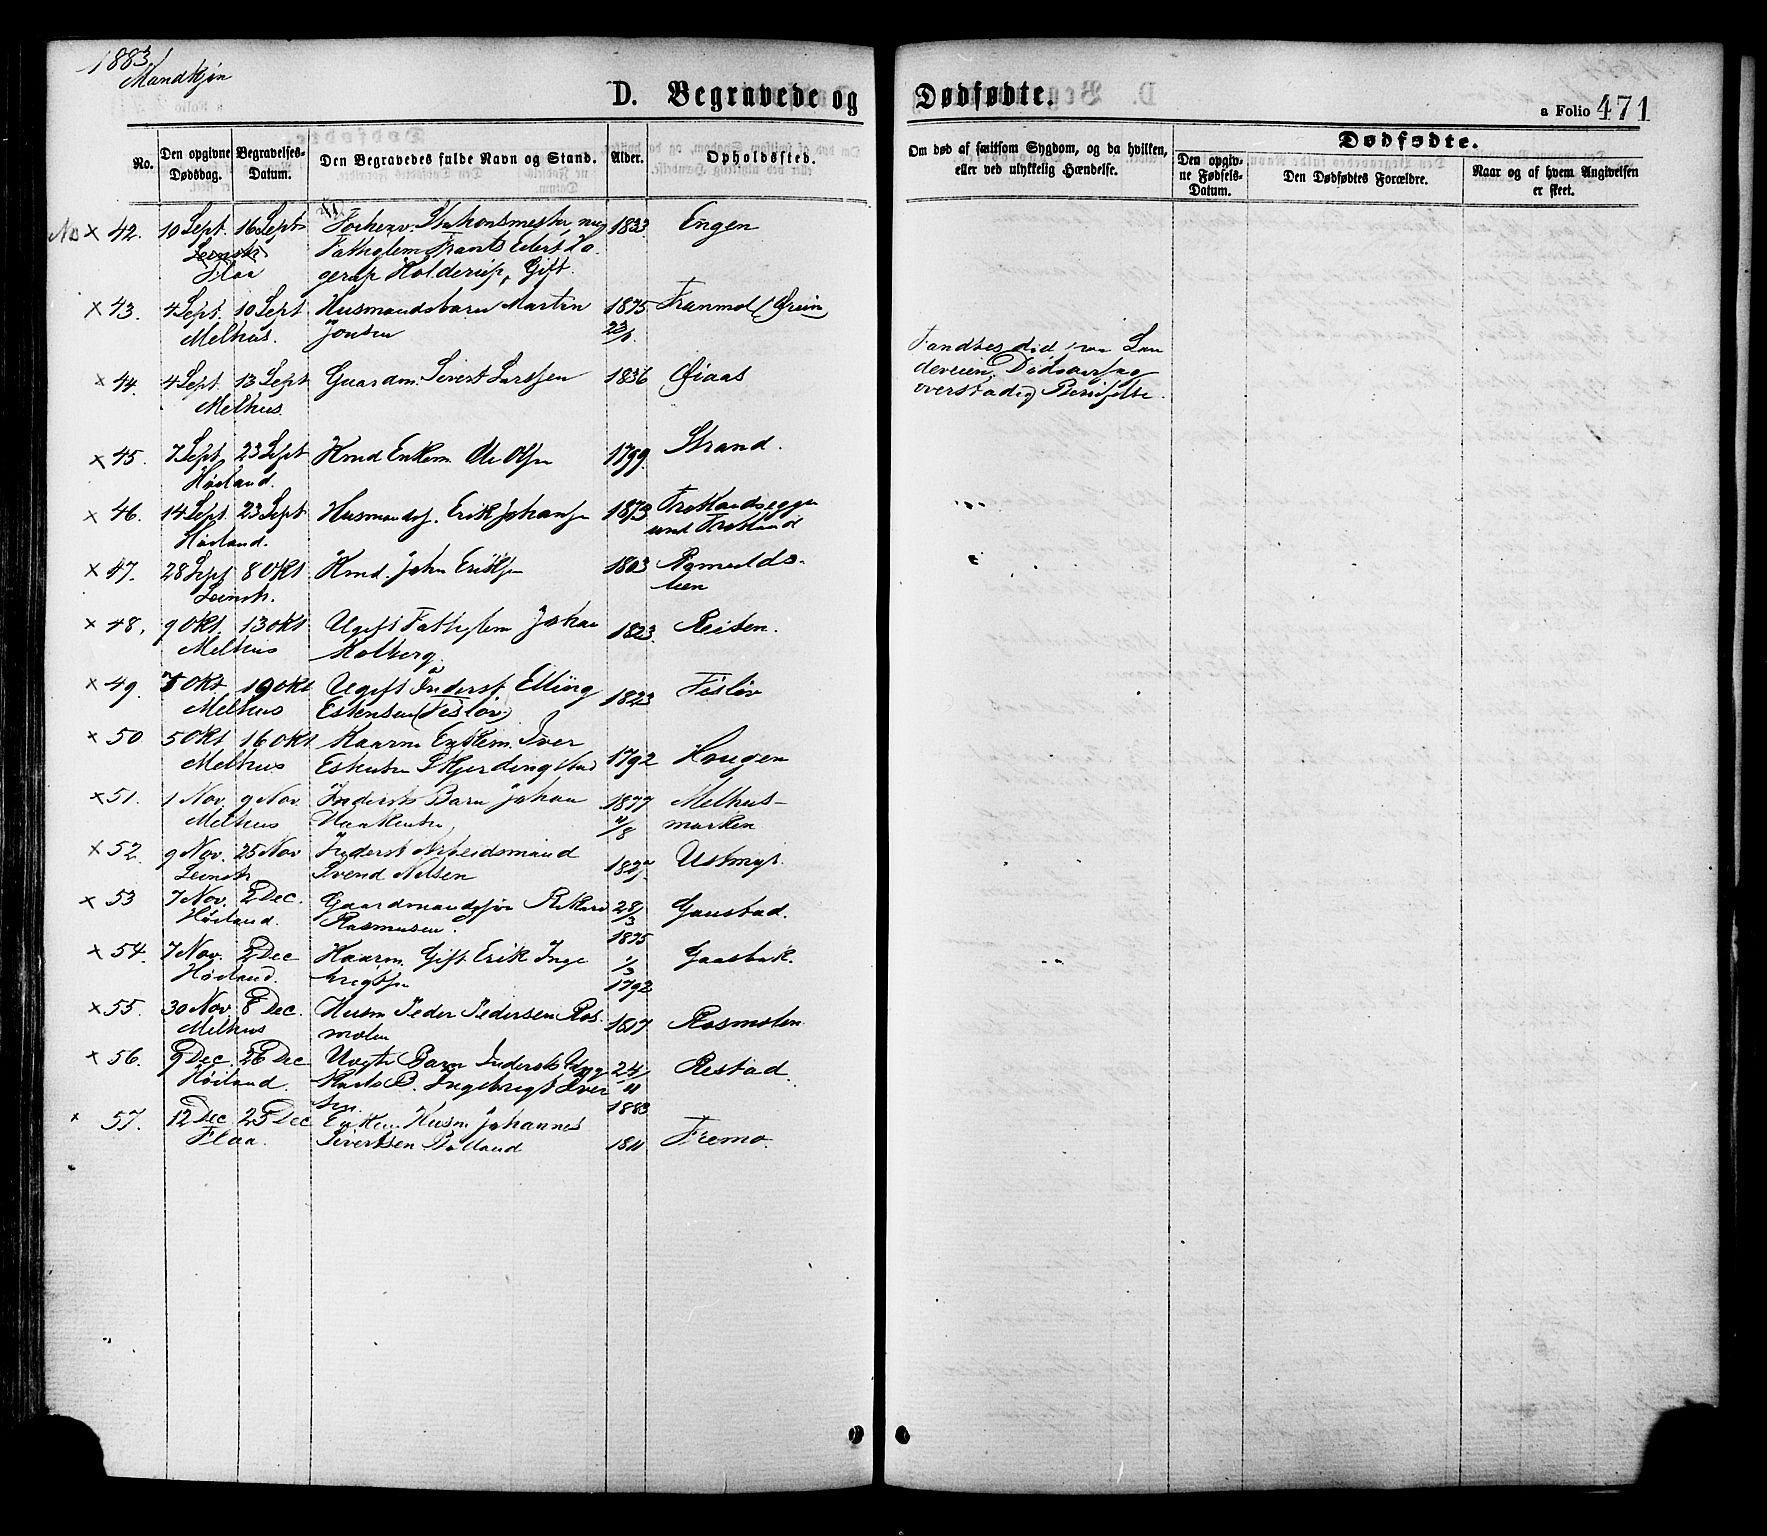 1883
Mandkjøn
D. Begravede og Dødfødte.
a Folio 471
No.
Den opgivne Dødsdag.
Begravelses-Datum.
Den Begravedes fulde Navn og Stand.
Alder.
Opholdssted.
Om død af smitsom Sygdom, og da hvilken, eller ved ulykkelig Hændelse.
Dødfødte.
Den opgivne Fødsels-Datum.
Den Dødfødtes Forældre.
Naar og af hvem Angivelsen er skeet.
× 42. 10 Sept. 16 Sept. Stationsmester, nu 1833 Engen
Flaa Fattiglem Frants Edert Ha
gerup Holderup, Gift.
× 43. 4 Sept. 10 Sept Husmandsbarn Martin 1875 Tranmel (Ørein)
Melhus. Jonsen 23/1.
× 44. 4 Sept. 13 Sept Gaardm. Sivert Larssen 1836 Øiaas
Melhus.
Fandtes død paa Lan
deveien, Dødsaarsag
overstadig Beruselse.
× 45. 7 Sept 23 Sept Hmd Enkem. Ole Olsen 1799. Strand.
Høiland.
× 46. 14 Sept. 23 Sept Husmands. Erik Johansen 1873
Høiland.
× 47. 28 Sept 8 Okt Hmd. John Eriksen 1803
Leinstr. lien
× 48. 9 Okt. 13 Okt Ugift Fattiglem Johan 1823. Reitan.
Melhus Kolberg
× 49. 5 Okt 19 Okt Ugift Inderst Elling 1823 Tisløv
Melhus Estensen (Tisløv)
× 50 5 Okt 16 Okt. Kaarm Enkem. Iver 1792 Hougen
Melhus Estensen Skjerdingstad
× 51. 1 Nov. 9 Nov. Inderst Barn Johan 1877 Melhus-
Melhus Haakensen /8 marken
× 52. 9 Nov. 25 Nov Inderst Arbeidsmand Ustmyr.
Leinstr Svend Nelsen
× 53 7 Nov. 2 Dec. Gaardmandssøn Rikard 28/3 Gaustad.
Høiland. Rasmusen. 1875
× 54. 7 Nov. 2 Dec Kaarm. Gift Erik Inge 1/3 Gaasbak.
Høiland. brigtsen 1792
× 55. 30 Nov. 8 Dec. Husm Peder Pedersen Ros- 1817 Rosmolen
Melhus molen
× 56. 9 Dec. 26 Dec Uægte Barn Inderst Ung 24/11 Restad.
Høiland. Karls B. Ingebrigt Iver
sen. 1883
× 57. 12 Dec 23 Dec Enkem. Husm Johannes
Flaa. Sivertsen 1811 Fremo.